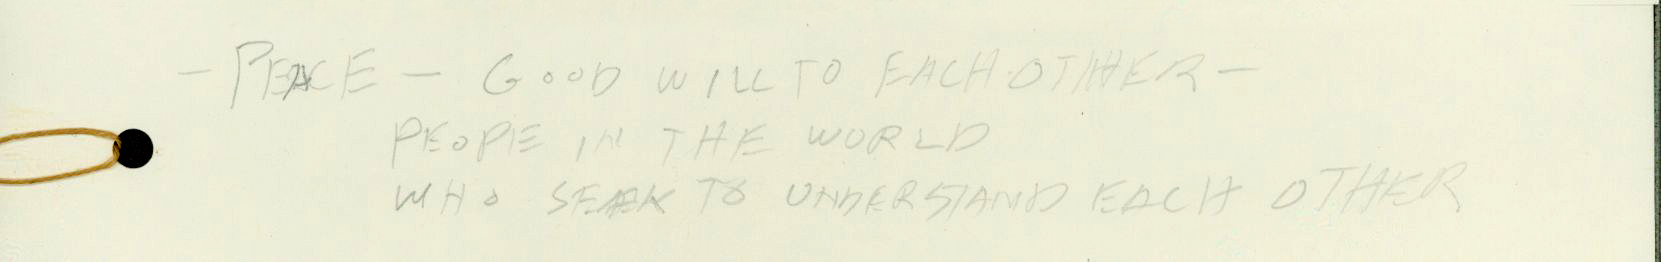 — PEACE — GOOD WILL TO EACH OTHER —
PEOPIE IN THE WORLD
WHO SEEK TO UNDERSTAND EACH OTHER